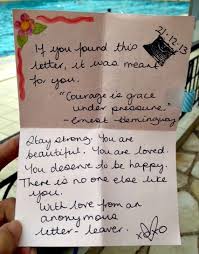 21·12·13
If you found this
letter, it was meant
for you.
"Courage is grace
under pressure."
- Ernest Hemingway
Stay strong. You are
beautiful. You are loved.
You deserve to be happy.
There is no one else like
you.
With love from an
anonymous
letter-leaver.